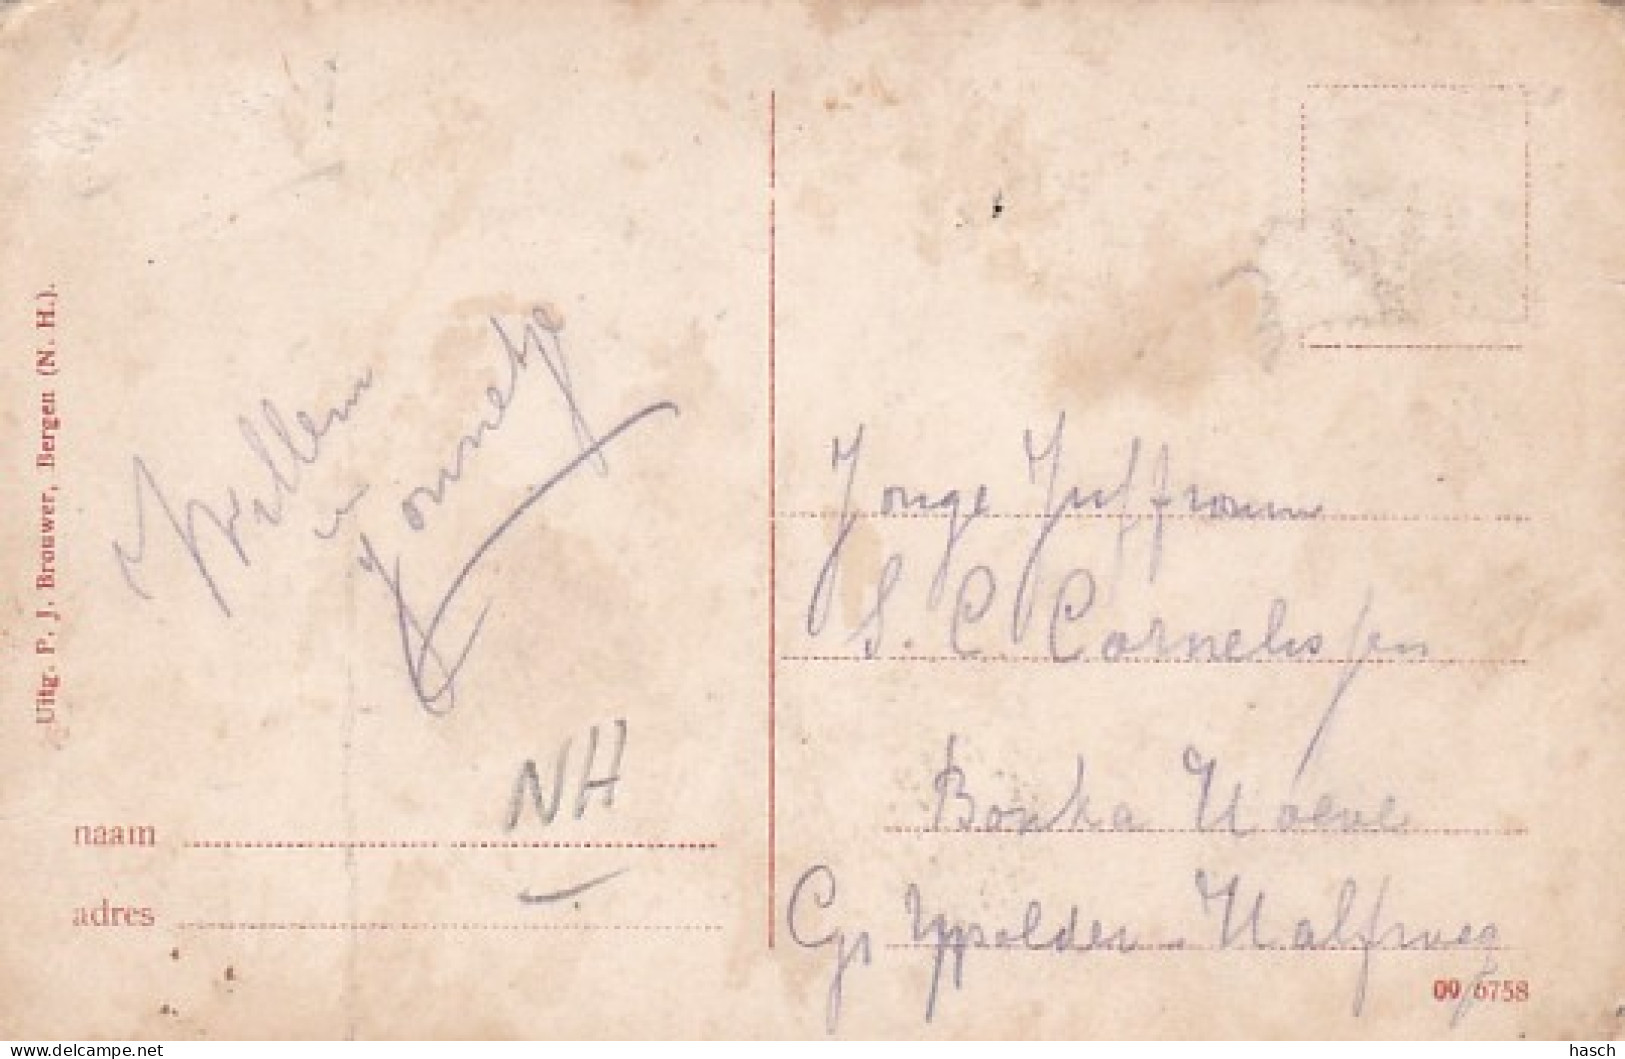 Uitg. P. J. Brouwer, Bergen (N. H.).
Willem
en
Jonnetje
NH
naam
adres
Jonge Juffrouw
S. C. Cornelissen
Bonka Hoeve
Gr Ypolder - Halfweg
09 6758
delcampe.net
hasch